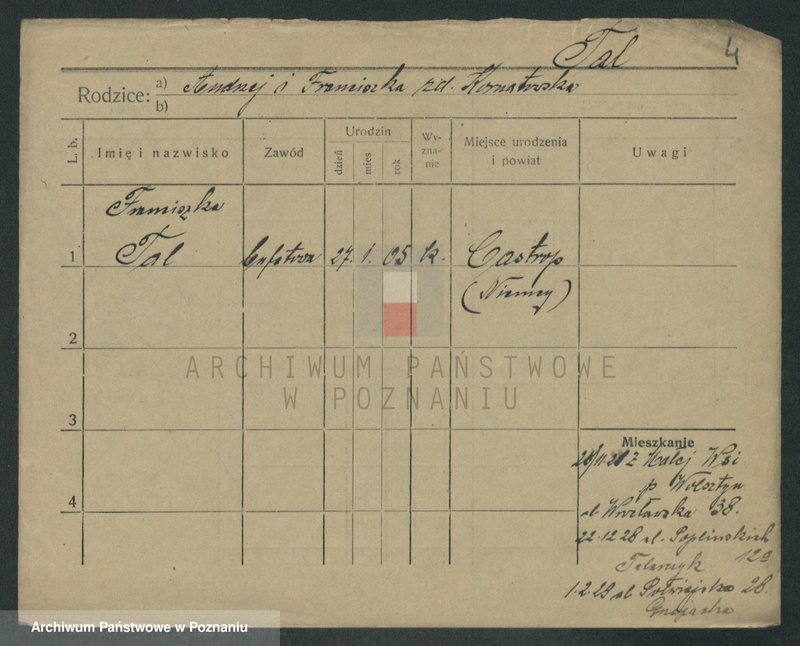 Tal
4
Rodzice: a) Andrzej i Franciszka zd. Kornatowska
b)
L. b. Imię i nazwisko Zawód Urodzin dzień mies rok Wy-zna-nie Miejsce urodzenia i powiat Uwagi
Franciszka
1 Tal 27. 1. 05 k. Castrop
(Niemcy)
2
ARCHIWUM PAŃSTWOWE
W POZNANIU
3
Mieszkanie
z Małej Wsi
p Wolsztyn
4
ul. Wrocławska 38.
22.12.28 ul.
129
1.2.29 ul. Półwiejska 28.
Archiwum Państwowe w Poznaniu